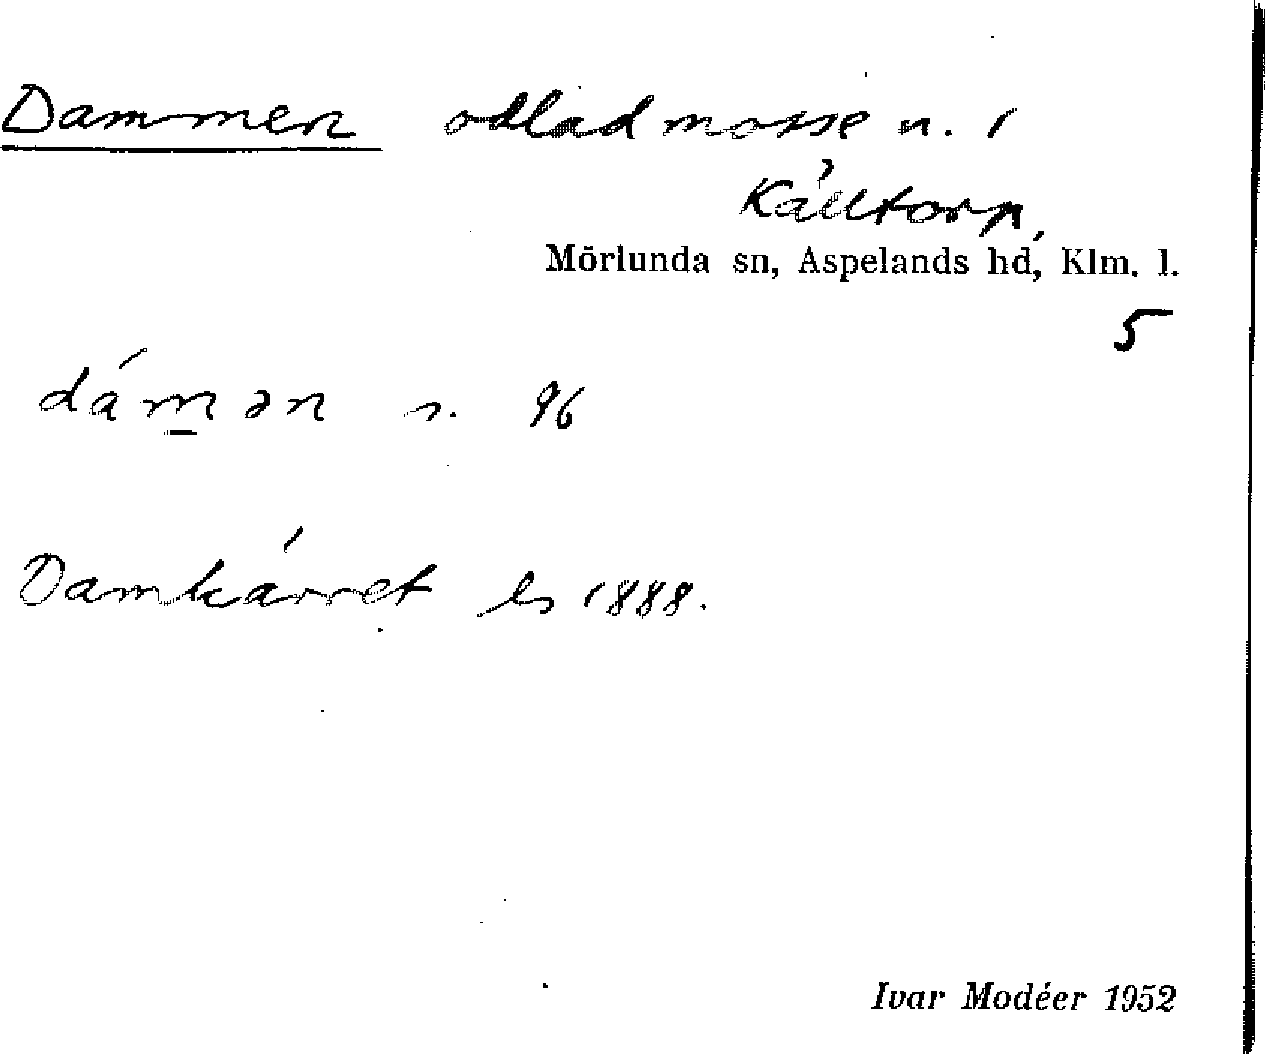 Dammen odlad mosse n. 1
Källtorp,
Mörlunda sn, Aspelands hd, Klm. l.
5
dámən s. 96
Damkärret ls 1888.
Ivar Modéer 1952